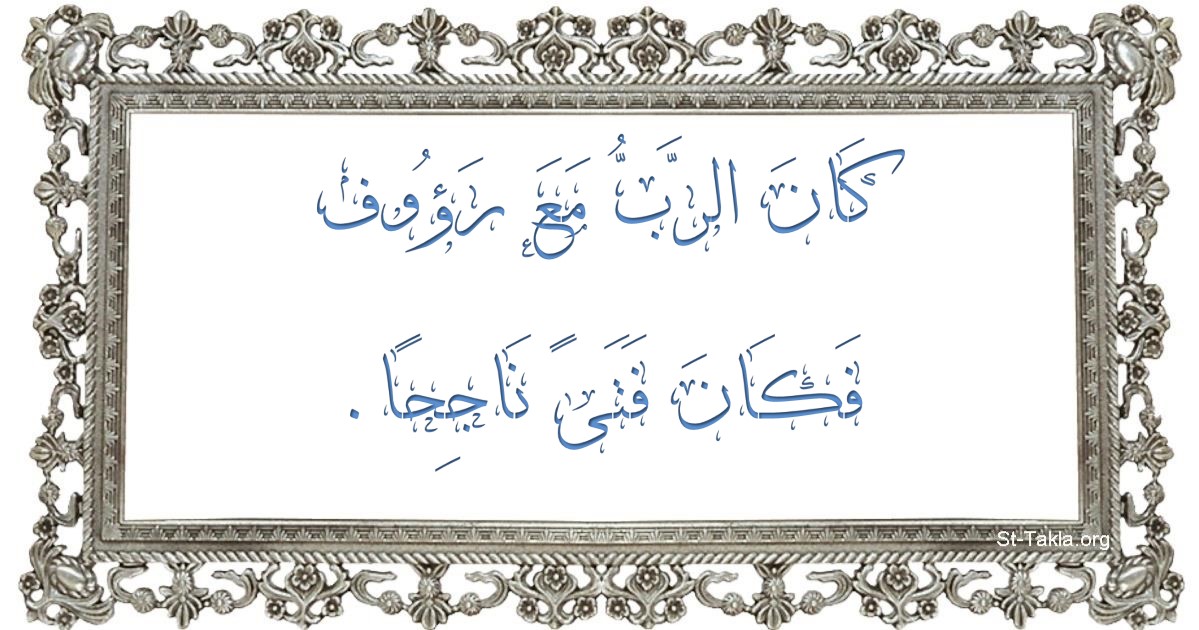 كَانَ الرَّبُّ مَعَ رَؤُوف
فَكَانَ فَتَىً نَاجِحًا.
St-Takla.org